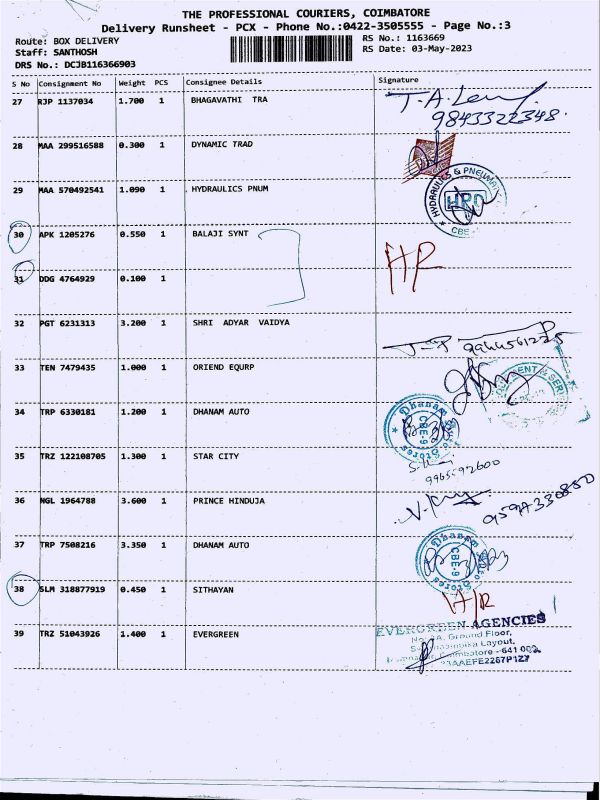 THE PROFESSIONAL COURIERS, COIMBATORE
Delivery Runsheet - PCX - Phone No.:0422-3505555 - Page No.:3
Route: BOX DELIVERY
RS No.: 1163669
Staff: SANTHOSH
RS Date: 03-May-2023
DRS No.: DCJB116366903
S No Consignment No Weight PCS Consignee Details Signature
27 RJP 1137034 1.700 1 BHAGAVATHI TRA
9843322348.
28 MAA 299516588 0.300 1 DYNAMIC TRAD
29 MAA 570492541 1.090 1 HYDRAULICS PNUM
HYDRAULICS & PNEUMA
HPD
CBE
30 APK 1205276 0.550 1 BALAJI SYNT
31 DDG 4764929 0.100 1
32 PGT 6231313 3.200 1 SHRI ADYAR VAIDYA
33 TEN 7479435 1.000 1 ORIEND EQURP
34 TRP 6330181 1.200 1 DHANAM AUTO
Dhanam
CBE-9
Stores
35 TRZ 122108705 1.300 1 STAR CITY
36 NGL 1964788 3.600 1 PRINCE HINDUJA
37 TRP 7508216 3.350 1 DHANAM AUTO
Dhanam
CBE-9
Stores
38 SLM 318877919 0.450 1 SITHAYAN
39 TRZ 51043926 1.400 1 EVERGREEN
EVERGREEN AGENCIES
Ground Floor,
Layout,
Coimbatore - 641 002